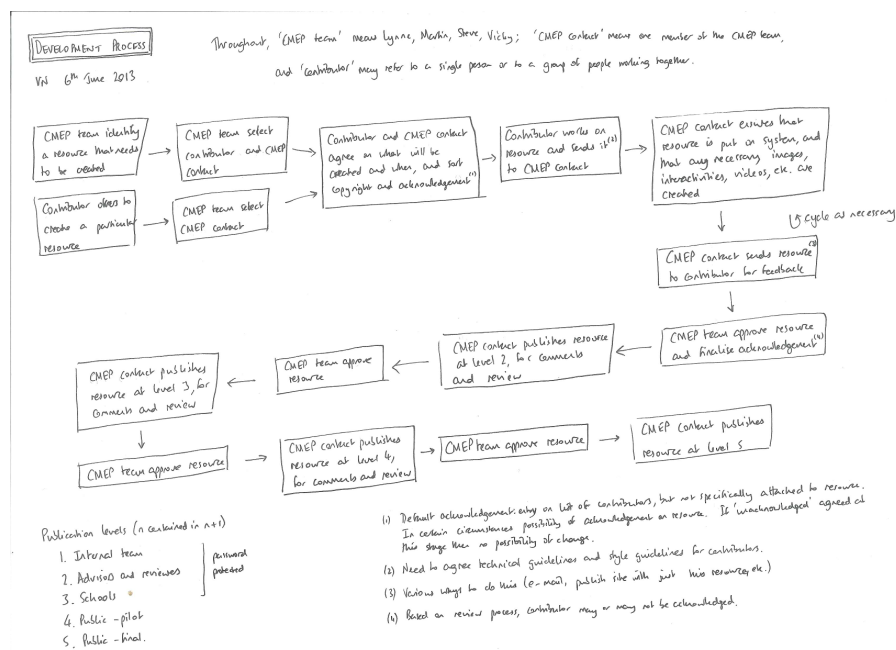 DEVELOPMENT PROCESS
VN 6th June 2013
Throughout, 'CMEP team' means Lynne, Martin, Steve, Vicky; 'CMEP contact' means one member of the CMEP team,
and 'contributor' may refer to a single person or to a group of people working together.
CMEP team identify
a resource that needs
to be created
CMEP team select
contributor and CMEP
contact
Contributor offers to
create a particular
resource
CMEP team select
CMEP contact
Contributor and CMEP contact
agree on what will be
created and when, and sort
copyright and acknowledgement(1)
Contributor works on
resource and sends it(2)
to CMEP contact
CMEP contact ensures that
resource is put on system, and
that any necessary images,
interactivities, videos, etc. are
created
cycle as necessary
CMEP contact sends resource(3)
to contributor for feedback
CMEP team approve resource
and finalise acknowledgement(4)
CMEP contact publishes resource
at level 2, for comments
and review
CMEP team approve
resource
CMEP contact publishes
resource at level 3, for
comments and review
CMEP team approve resource
CMEP contact publishes
resource at level 4,
for comments and review
CMEP team approve resource
CMEP contact publishes
resource at level 5
Publication levels (n contained in n+1)
1. Internal team
2. Advisors and reviewers
3. Schools
password
protected
4. Public - pilot
5. Public - final.
(1) Default acknowledgement: entry on list of contributors, but not specifically attached to resource.
In certain circumstances possibility of acknowledgement on resource. If 'unacknowledged' agreed at
this stage then no possibility of change.
(2) Need to agree technical guidelines and style guidelines for contributors.
(3) Various ways to do this (e-mail, publish site with just this resource, etc.)
(4) Based on review process, contributor may or may not be acknowledged.